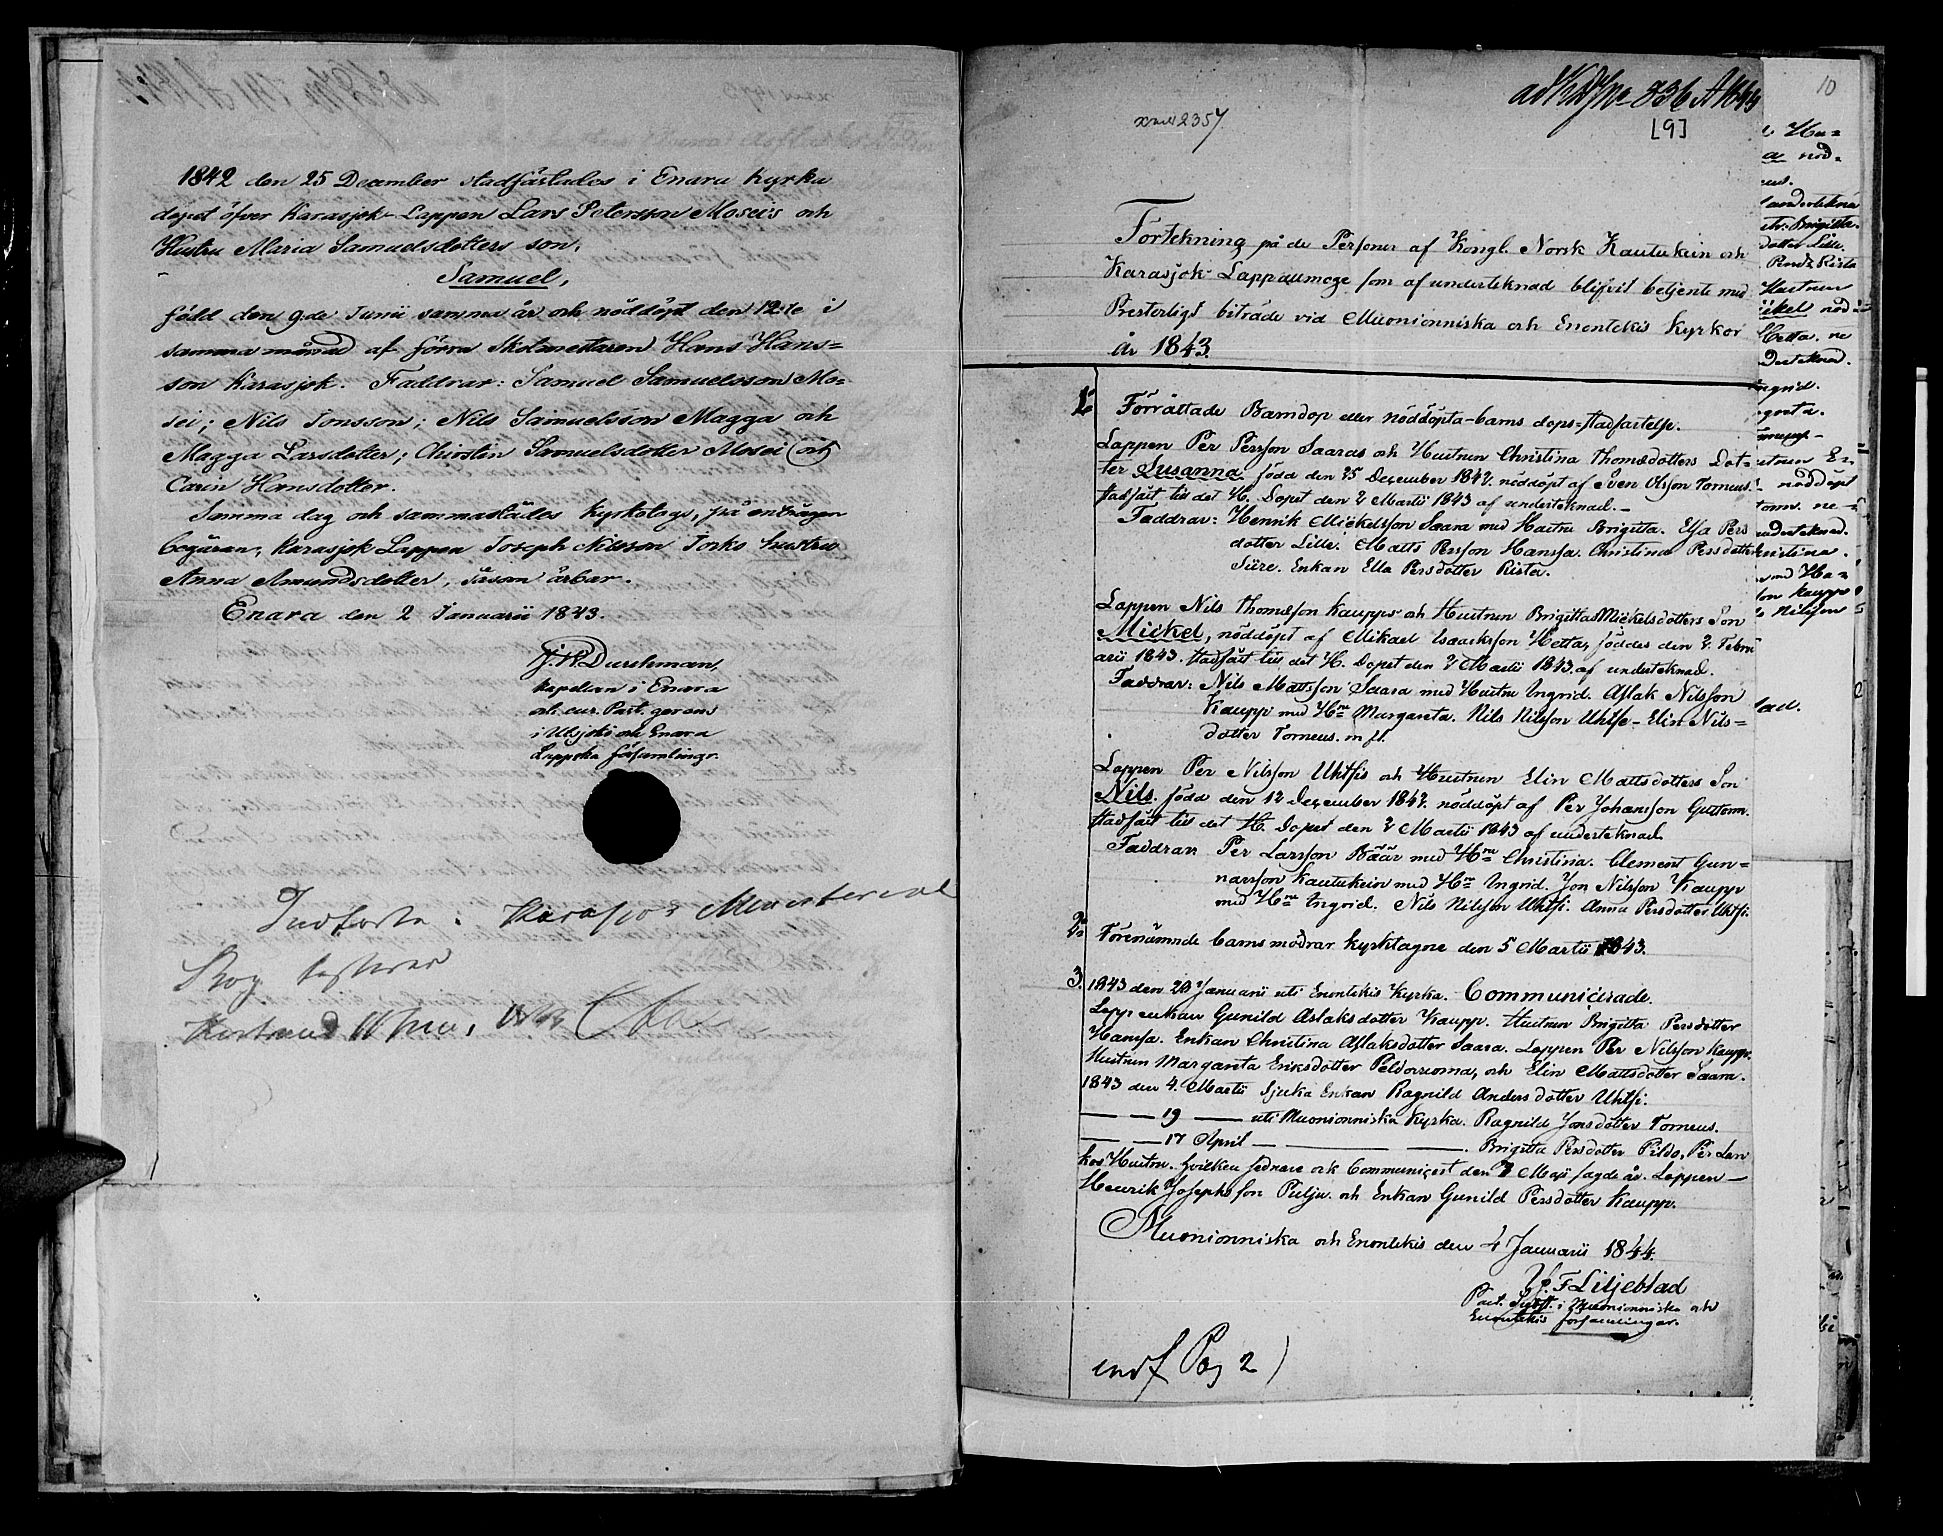 1842 den 25 December stadfästades i Enara Kyrka
dopet öfver Karasjok-Lappen Lars Petersson Moseis och
Hustru Maria Samuelsdotters son,
Samuel,
född den 9.de Junii samma år och nöddöpt den 12.te i
samma månad af förra Skolmestaren Hans Hans=
son Karasjok. Faddrar: Samuel Samuelsson Mo=
sei; Nils Jonsson; Nils Samuelsson Magga och
Magga Larsdotter; Christin Samuelsdotter Mosei och
Carin Hansdotter.
Samma dag och sammastädes kyrkotogs, på enträgen
begäran, Karasjok Lappen Joseph Nilsson Jorks hustru
Anna Amundsdotter, såsom ärbar.
Enara den 2 Januarii 1843.
Durchman,
kapellan i Enara
och cur. Past. gerens
i Utsjoki och Enara
Lappska församlingr.
Indførte i Karasjok Ministerial
Bog
10
[9]
2357
Förtekning på de Personer af Kongl. Norsk Kautukein och
Karasjok Lappallmoge som af undertecknad blifvit betjente med
Presterligt biträde vid Muonionniska och Enontekis Kyrkor
år 1843.
1. Förrättade Barndop eller nöddöpta-barns dops-stadfästelse.
Lappen Per Persson Saaras och Hustrun Christina Thomædotters Dot=
ter Susanna, född den 25 December 1842. nöddöpt af Sven Olsson Torneus.
stadfäst till det H. Dopet den 2 Martii 1843 af undertecknad.-
Faddrar: Henrik Mickelsson Saara med Hustru Brigitta. Elsa Pers
dotter Lille. Matts Persson Hanssa. Christina Persdotter
Siire. Enkan Ella Persdotter Rista.
Lappen Nils Thomæson Kaupps och Hustrun Brigitta Mickelsdotters Son
Mickel, nöddöpt af Mikael Isaacksson Hetta, föddes den 2. Febru
arii 1843. stadfäst till det H. Dopet den 2 Martii 1843. af undertecknad.
Faddrar: Nils Mattsson Saara med Hustru Ingrid. Aslak Nilsson
Kaupp med H:ru Margareta. Nils Nilsson Uhtsi - Elin Nils=
dotter Torneus. m fl.
Lappen Per Nilsson Uhtsis och Hustrun Elin Mattsdotters Son
Nils. född den 12 December 1842. nöddöpt af Per Johansson Guttorm.
stadfäst till det H. Dopet den 2 Martii 1843 af undertecknad.
Faddrar: Per Larsson Bäär med H:ru Christina. Clement Gun=
narsson Kautukein med H:ru Ingrid. Jon Nilsson Kaupp
med H:ru Ingrid. Nils Nilsson Uhtsi. Anna Persdotter Uhtsi.
2. Förenämnde barns mödrar kyrktagne den 5 Martii 1843.
3. 1843 den 28 Januarii uti Enontekis Kyrka. Communicerade.
Lapp enkan Gunild Aslaksdotter Kaupp. Hustrun Brigitta Persdotter
Hansa. Enkan Christina Aslaksdotter Saara. Lappen Per Nilsson Kaupp.
Hustrun Margareta Eriksdotter Peldovuoma, och Elin Mattsdotter Saara.
1843 den 4. Martii Sjuka Enkan Ragnild Anders dotter Uhtsi.
— — 19 — uti Muonionniska Kyrka. Ragnild Jonsdotter Torneus.
— — 17 April — — . Brigitta Persdotter Pildo, Per Lars
kos Hustru. hvilken sednare ock Communicerat den 7 Maji sagde år. Lappen—
Henrik Josephsson Pulju. och Enkan Gunild Persdotter Kaupp.
Muonionniska och Enontekis den 4 Januarii 1844.
F Liljeblad
Past. Subst. i Muonionniska och
Enontekis församlingar.
indf Pag 2